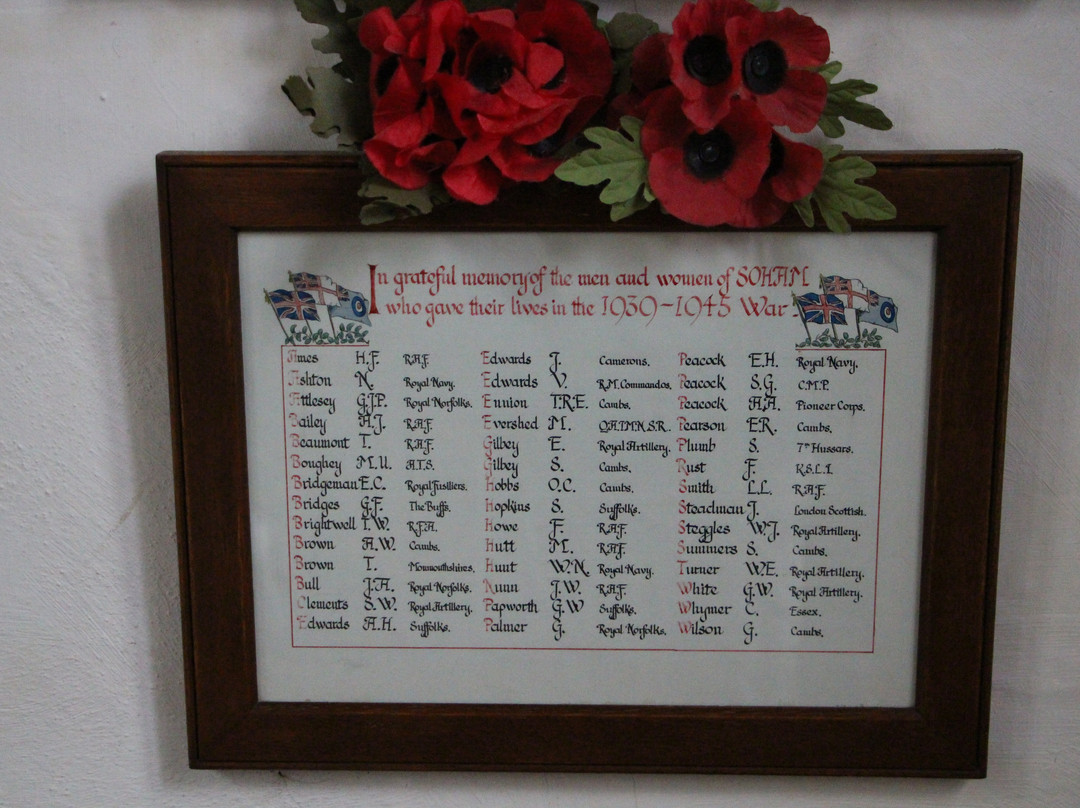 In grateful memory of the men and women of SOHAM
who gave their lives in the 1939-1945 War.
Ames H.F. R.A.F.
Ashton N. Royal Navy.
Attlesey G.J.P. Royal Norfolks.
Bailey A.J. R.A.F.
Beaumont T. R.A.F.
Boughey M.U. A.T.S.
Bridgeman E.C. Royal Fusiliers.
Bridges G.F. The Buffs.
Brightwell T.W. R.F.A.
Brown A.W. Cambs.
Brown T. Monmouthshires.
Bull J.A. Royal Norfolks.
Clements S.W. Royal Artillery.
Edwards A.H. Suffolks.
Edwards J. Camerons.
Edwards V. R.M. Commandos.
Ennion T.R.E. Cambs.
Evershed M. Q.A.I.M.N.S.R.
Gilbey E. Royal Artillery.
Gilbey S. Cambs.
Hobbs O.C. Cambs.
Hopkins S. Suffolks.
Howe F. R.A.F.
Hutt M. R.A.F.
Hunt W.N. Royal Navy.
Nunn J.W. R.A.F.
Papworth G.W Suffolks.
Palmer G. Royal Norfolks.
Peacock E.H. Royal Navy.
Peacock S.G. C.M.P.
Peacock A.A. Pioneer Corps.
Pearson E.R. Cambs.
Plumb S. 7th Hussars.
Rust F. K.S.L.I.
Smith L.L. R.A.F.
Steadman J. London Scottish.
Steggles W.J. Royal Artillery.
Summers S. Cambs.
Turner W.E. Royal Artillery.
White G.W. Royal Artillery.
Whymer C. Essex.
Wilson G. Cambs.